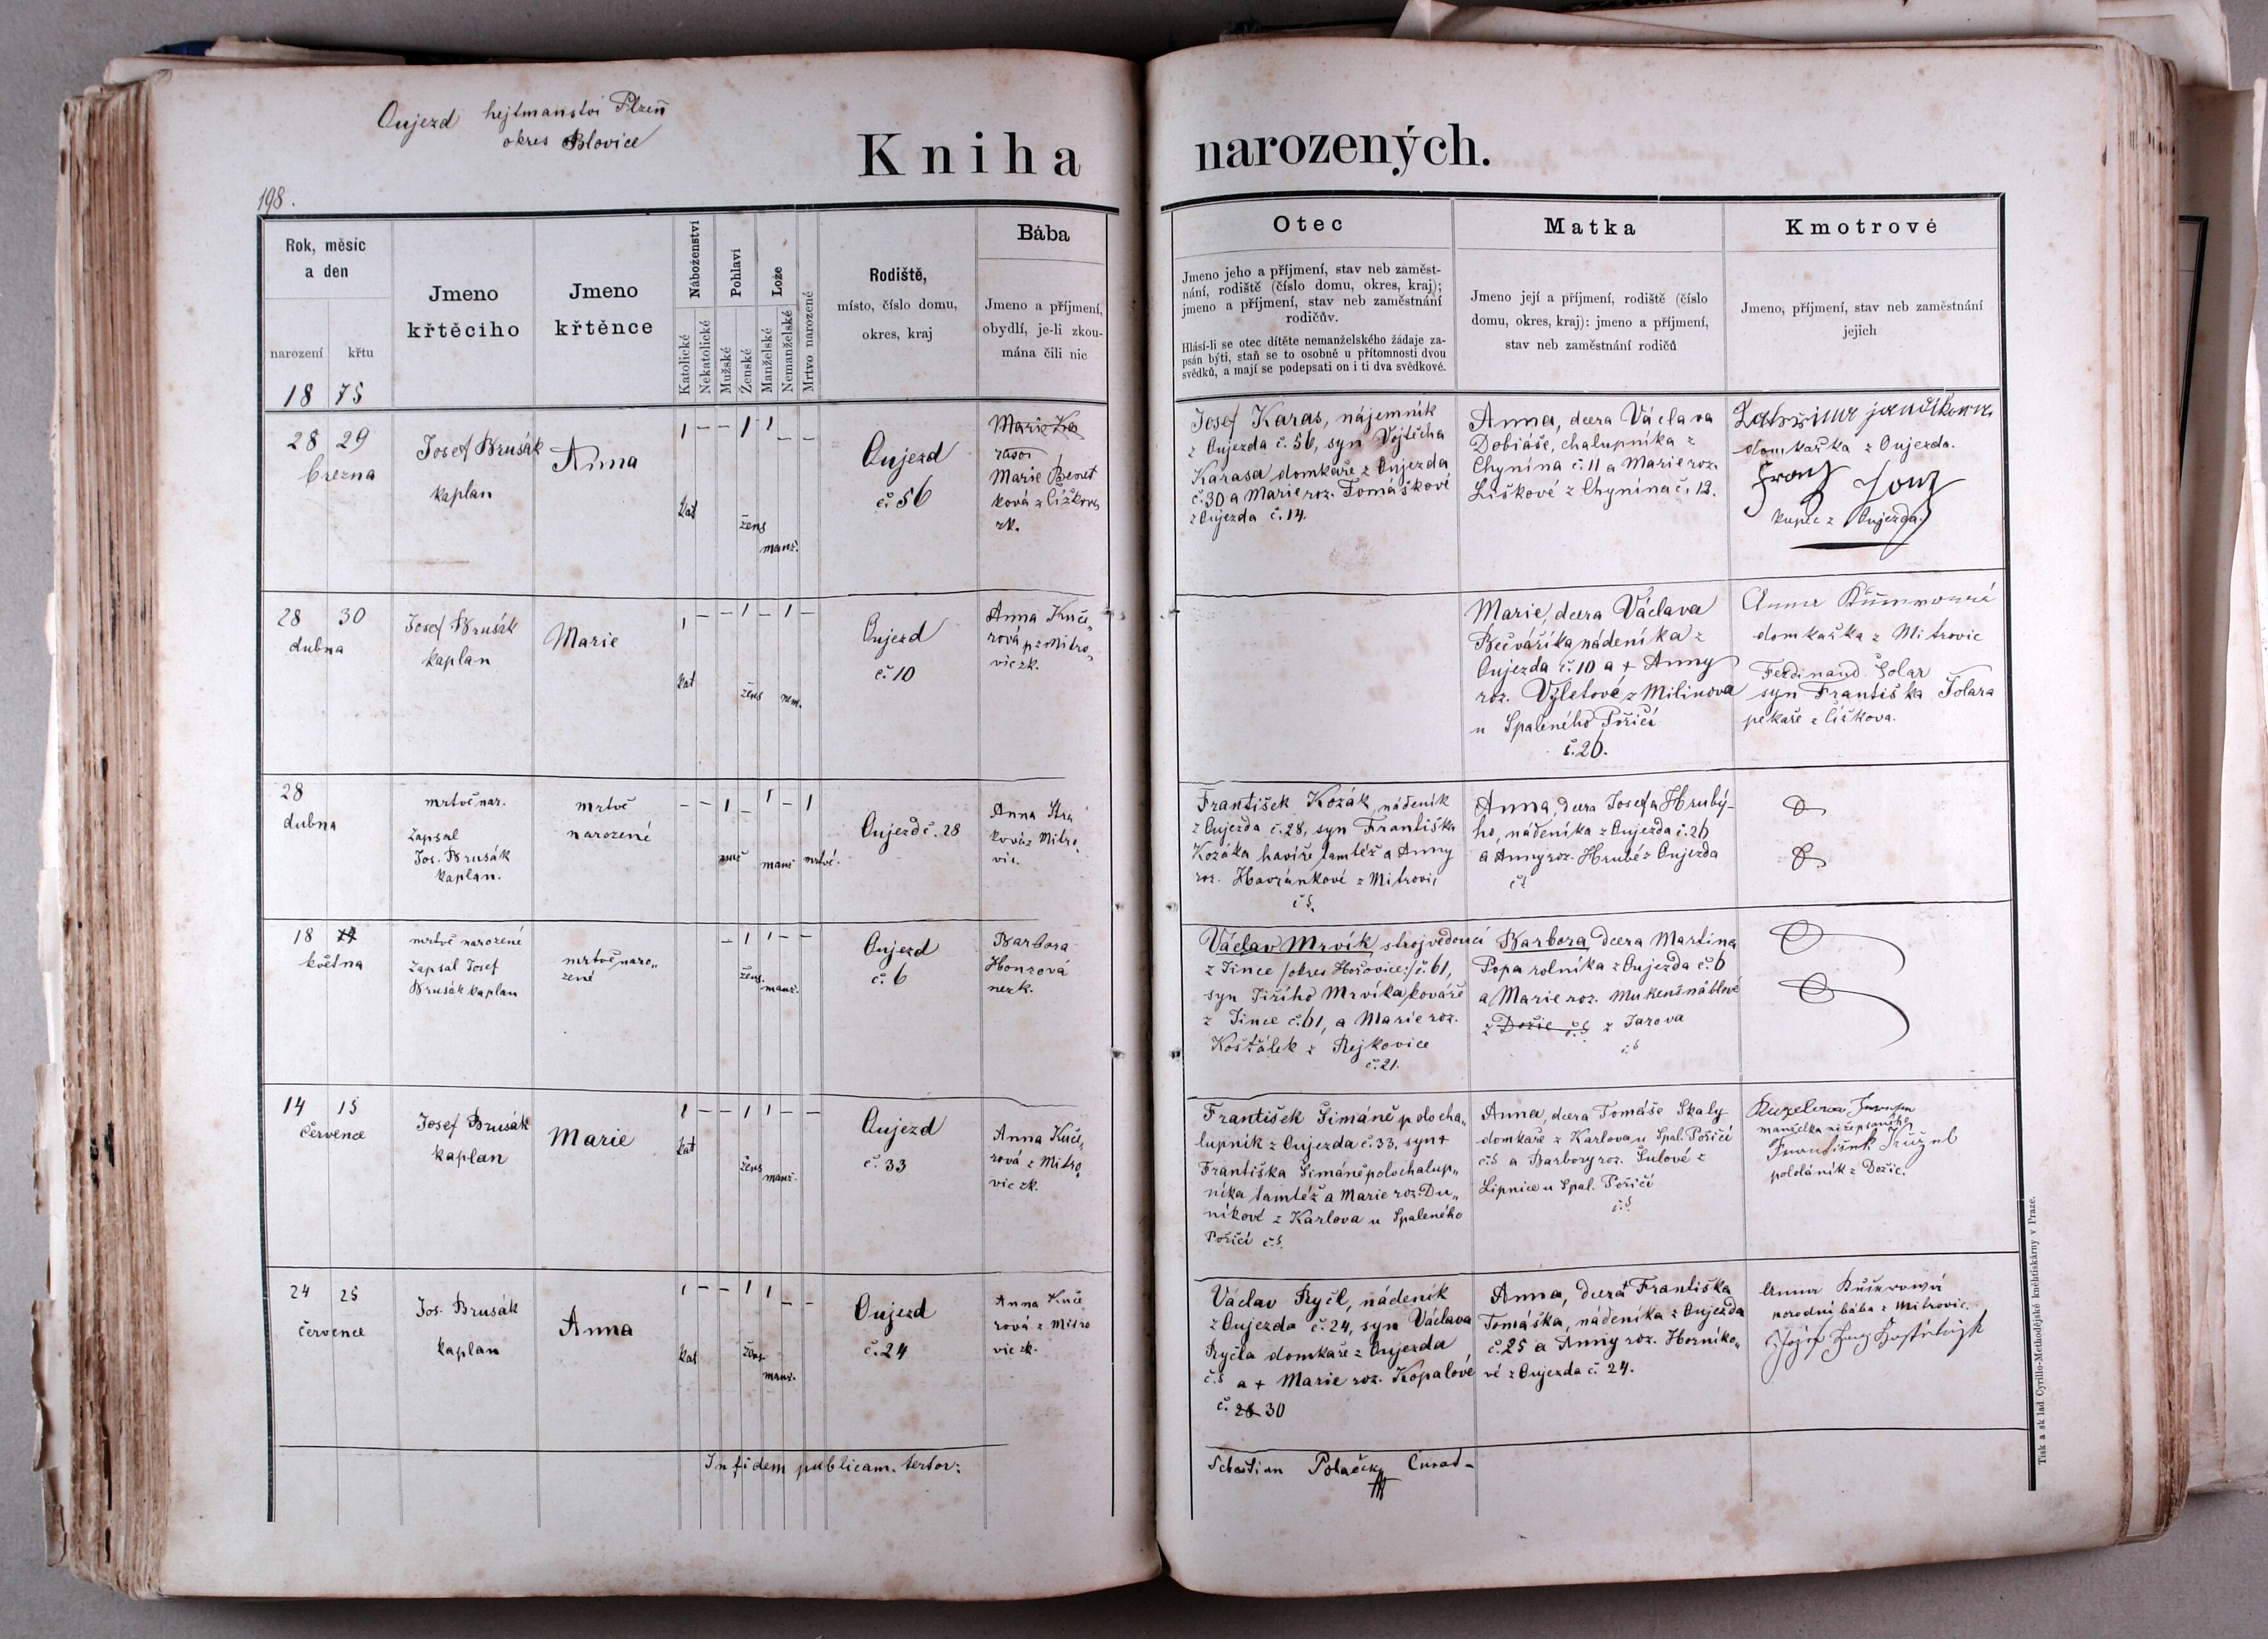 Oujezd hejtmanství Plzeň
okres Blovice
Kniha narozených.
198.
Rok, měsíc
a den
narození
křtu
18 75
Jmeno
křtěcího
Jmeno
křtěnce
Náboženství
Katolické
Nekatolické
Pohlaví
Mužské
Ženské
Lože
Manželské
Nemanželské
Mrtvo narozené
Rodiště,
místo, číslo domu,
okres, kraj
Bába
Jmeno a příjmení,
obydlí, je-li zkou-
mána čili nic
Otec
Jmeno jeho a příjmení, stav neb zaměst-
nání, rodiště (číslo domu, okres, kraj);
jmeno a příjmení, stav neb zaměstnání
rodičův.
Hlásí-li se otec dítěte nemanželského žádaje za-
psán býti, staň se to osobné u přítomnosti dvou
svědků, a mají se podepsati on i ti dva svědkové.
Matka
Jmeno její a příjmení, rodiště (číslo
domu, okres, kraj): jmeno a příjmení,
stav neb zaměstnání rodičů
Kmotrové
Jmeno, příjmení, stav neb zaměstnání
jejich
28 29
března
Josef Brusák
kaplan
Anna
1 – – 1 1 – –
kat
žens
manž.
Oujezd
č. 56
Marie Benet
ková z Čížkova
zk.
Josef Karas, nájemník
z Oujezda č. 56, syn Vojtěcha
Karasa domkaře z Oujezda
č. 30 a Marie roz. Tomáškové
z Oujezda č. 14.
Anna, dcera Václava
Dobiáše, chalupníka z
Chynína č. 11 a Marie roz.
Liškové z Chynína č. 12.
domkařka z Oujezda.
Franz
kupec z Oujezda.
28 30
dubna
Josef Brusák
kaplan
Marie
1 – – 1 – 1 –
kat
žens
nem.
Oujezd
č. 10
Anna Kuče„
rová z Mitro„
vic zk.
Marie, dcera Václava
Bečváříka nádeníka z
Oujezda č. 10 a + Anny
roz. Výletové z Milinova
u Spaleného Poříčí
č. 26.
Anna
domkařka z Mitrovic
Ferdinand Šolar
syn Františka Šolara
pekaře z Čížkova.
28
dubna
mrtvě nar.
Zapsal
Jos. Brusák
kaplan.
mrtvě
narozené
– – 1 – 1 – 1
muž
manž
mrtvé.
Oujezd č. 28
Anna
ková z Mitro„
vic.
František Kozák, nádeník
z Oujezda č. 28, syn Františka
Kozáka havíře tamtéž a Anny
roz. Havránkové z Mitrovic
č.
Anna, dcera Josefa Hrubý-
ho, nádeníka z Oujezda č. 26
a Anny roz. Hrubé z Oujezda
č.
18
května
mrtvě narozené
Zapsal Josef
Brusák kaplan
mrtvě naro„
zené
– 1 1 – –
žens.
manž.
Oujezd
č. 6
Barbora
Honzová
nezk.
Václav Mrvík, strojvedoucí
z Jince /okres Hořovice:/ č. 61,
syn Jiřího Mrvíka, kováře
z Jince č. 61, a Marie roz.
Košťálek z Rejkovice
č. 21.
Barbora dcera Martina
Popa rolníka z Oujezda č. 6
a Marie roz. Mukenšnáblové
z Jarova
14 15
července
Josef Brusák
kaplan
Marie
1 – – 1 1 – –
kat
žens
manž.
Oujezd
č. 33
Anna Kuče„
rová z Mitro„
vic zk.
František Šimáně polocha„
lupník z Oujezda č. 33, syn +
Františka Šimáně polochalup„
níka tamtéž a Marie roz. Du„
níkové z Karlova u Spaleného
Poříčí
Anna, dcera Tomáše Skaly
domkaře z Karlova u Spal. Poříčí
a Barbory roz. Šulové z
Lipnice u Spal. Poříčí
manželka níže psaného
pololáník z Dožic.
24 25
července
Jos. Brusák
kaplan
Anna
1 – – 1 1 – –
kat
žens.
manž.
Oujezd
č. 24
Anna Kuče
rová z Mitro
vic zk.
Václav Ryčl, nádeník
z Oujezda č. 24, syn Václava
Ryčla domkaře z Oujezda
a + Marie roz. Kopalové
č. 28 30
Anna, dcera Františka
Tomáška, nádeníka z Oujezda
č. 25 a Anny roz. Horníko„
vé z Oujezda č. 24.
Anna
porodní bába z Mitrovic.
Josef
In fidem publicam. testor:
Sebastian Polaček
Tisk a sklad Cyrillo-Methodějské kněhtiskárny v Praze.